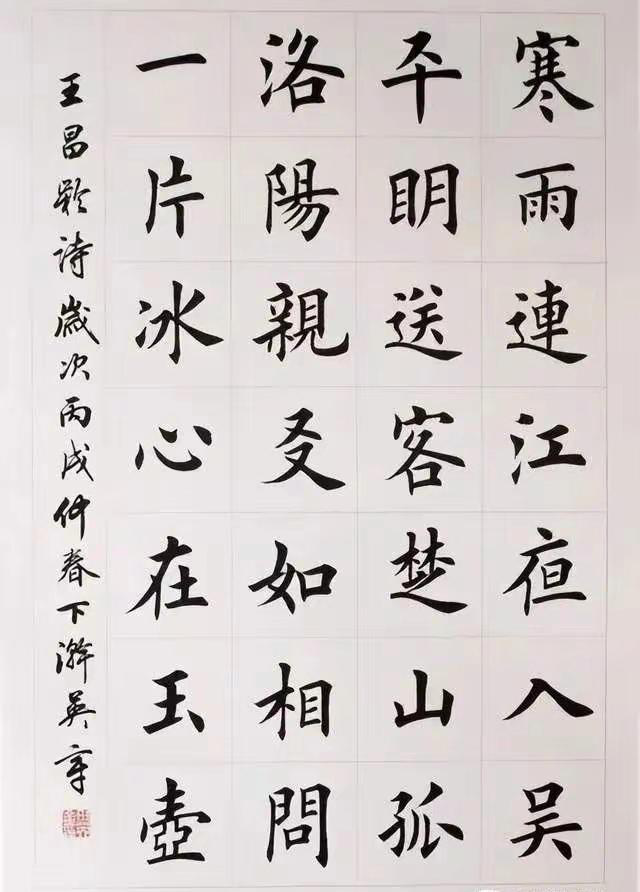 寒雨連江夜入吴
平明送客楚山孤
洛陽親友如相問
一片冰心在玉壺
王昌龄诗歲次丙戌仲春下澣英章